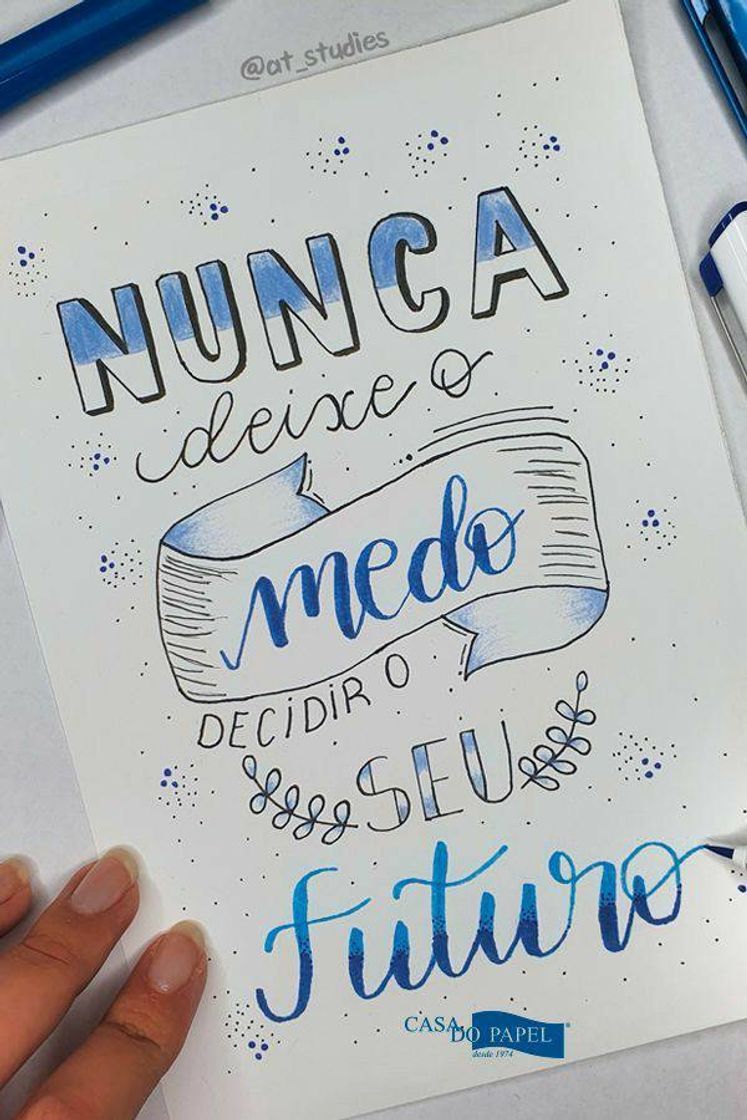 @at_studies
NUNCA
deixe o
medo
DECIDIR O
SEU
Futuro
CASA
DO PAPEL
desde 1974